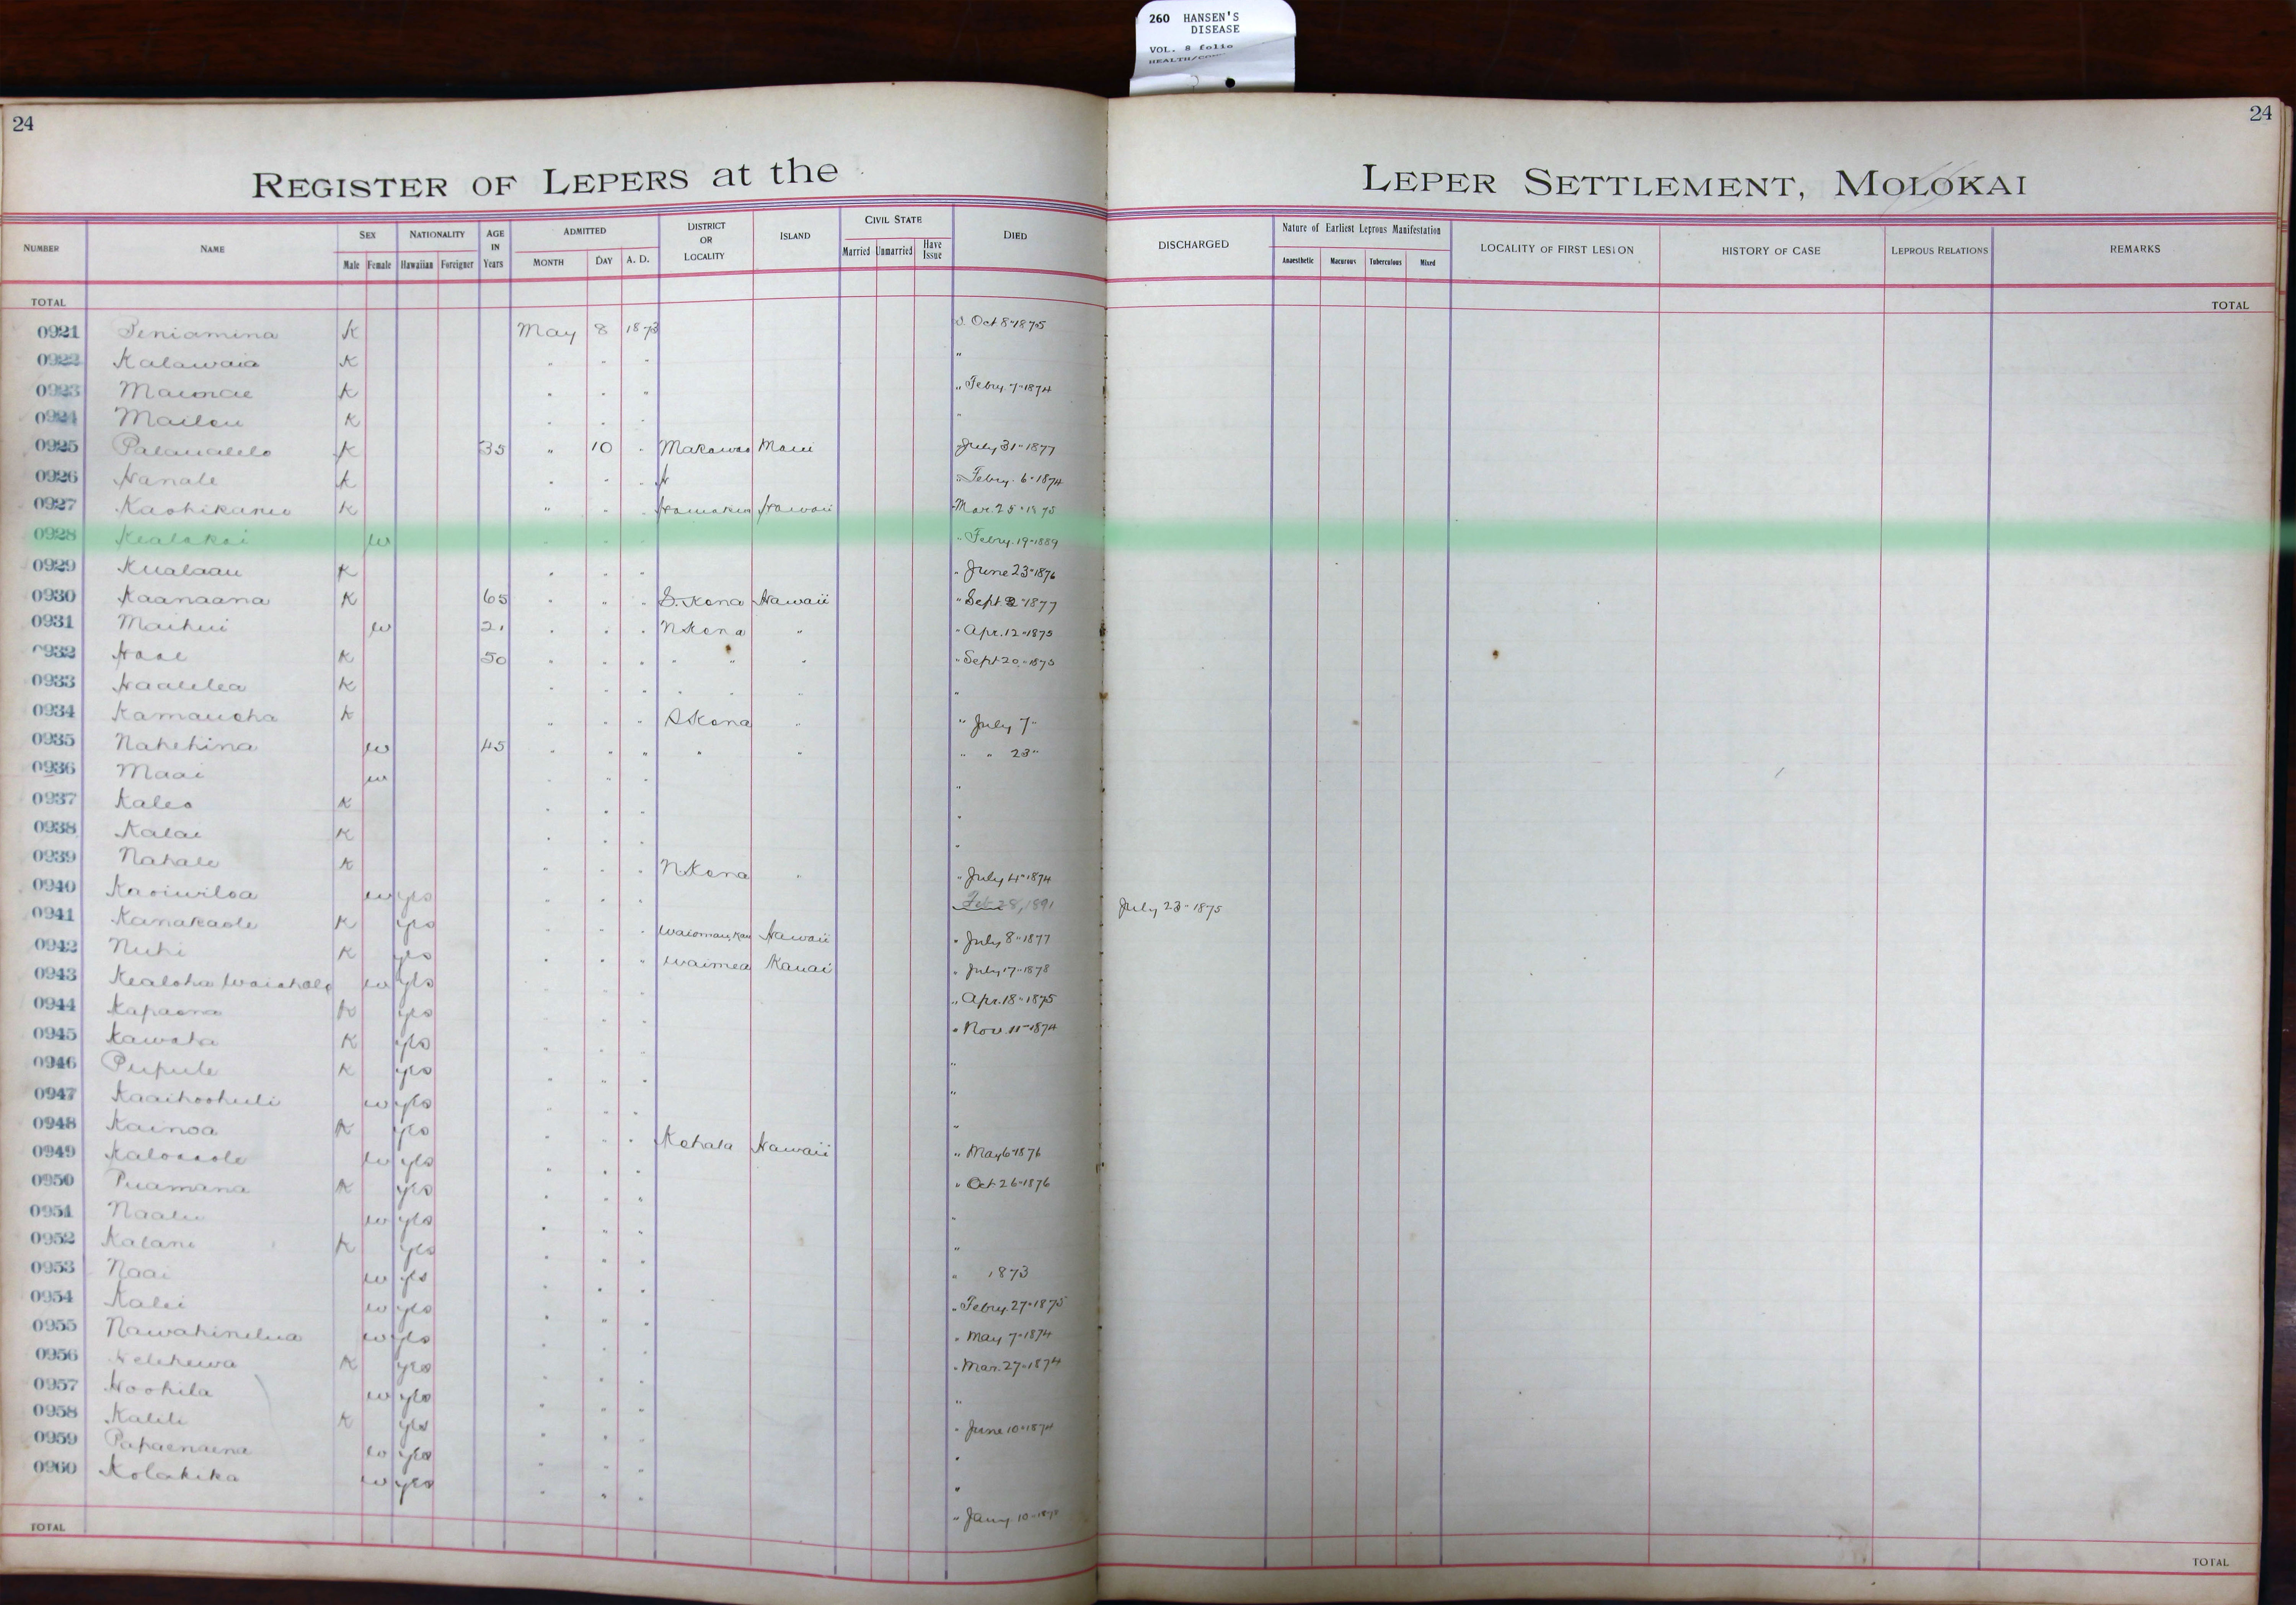 260 HANSEN'S
DISEASE
VOL. 8 folio
24
24
REGISTER OF LEPERS at the LEPER SETTLEMENT, MOLOKAI
NUMBER NAME SEX Male Female NATIONALITY Hawaiian Foreigner AGE IN Years ADMITTED MONTH DAY A. D. DISTRICT OR LOCALITY ISLAND CIVIL STATE Married Unmarried Have Issue DIED DISCHARGED Nature of Earliest Leprous Manifestation Anaesthetic Macurous Tuberculous Mixed LOCALITY OF FIRST LESION HISTORY OF CASE LEPROUS RELATIONS REMARKS
TOTAL TOTAL
0921 Peniamina K May 8 1873 Oct 8" 1875
0922 Kalawaia K " " " "
0923 K " " " " Febry. 7" 1874
0924 K " " " "
0925 K 35 " 10 " Makawao Maui July 31" 1877
0926 Hanale K " " " " Febry. 6" 1874
0927 K " " " Hamakua Hawaii Mar. 25" 1875
0928 w " " " " Febry. 19" 1889
0929 Kualaau K " " " " June 23" 1876
0930 Kaanaana K 65 " " " S. Kona Hawaii " Sept 1877
0931 Maihui w 21 " " " N Kona " " Apr. 12" 1875
0932 K 50 " " " " " " " Sept 20" 1875
0933 Haalelea K " " " " " " "
0934 Kamauoha K " " " S Kona " " July 7"
0935 Nahehina w 45 " " " " " " " 23"
0936 Maai w " " " "
0937 Kaleo K " " " "
0938 Kalai K " " " "
0939 Nahale K " " " N Kona " " July 4" 1874
0940 Kaoiwiloa w yes " " " Feb 28, 1891 July 23" 1875
0941 Kanakaole K yes " " " Hawaii " July 8" 1877
0942 Nuhi K yes " " " Waimea Kauai " July 17" 1878
0943 Kealoha w yes " " " Apr. 18" 1875
0944 Kapaona K yes " " " Nov. 11" 1874
0945 Kawaha K yes " " " "
0946 Pupule K yes " " " "
0947 Kaaihoohuli w yes " " " "
0948 Kainoa K yes " " " Kohala Hawaii " May 6" 1876
0949 w yes " " " Oct 26" 1876
0950 Puamana K yes " " " "
0951 Naalu w yes " " " "
0952 Kalani K yes " " " 1873
0953 Naai w yes " " " Febry. 27" 1875
0954 Kalei w yes " " " May 7" 1874
0955 w yes " " " Mar. 27" 1874
0956 K yes " " " "
0957 Hoohila w yes " " " June 10" 1874
0958 Kalili K yes " " " "
0959 Papaenaena w yes " " " "
0960 Kolakika w yes " " " Jany. 10"
TOTAL TOTAL